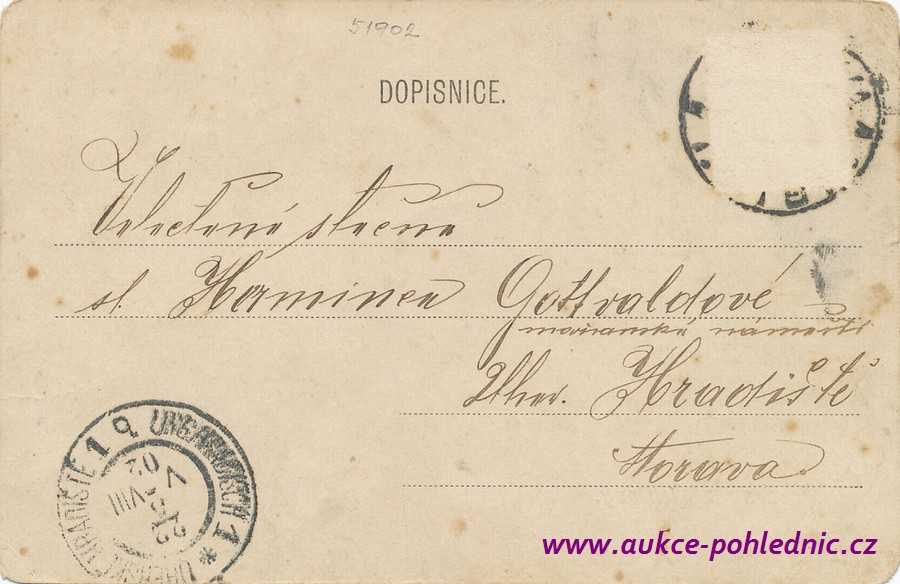 51902
DOPISNICE.
Velectěná slečna
sl. Herminka Gottvaldové
marianské náměstí
Uher. Hradiště
Morava
UNGARISCH
HRADIŠTĚ 1
VIII
02
www.aukce-pohlednic.cz